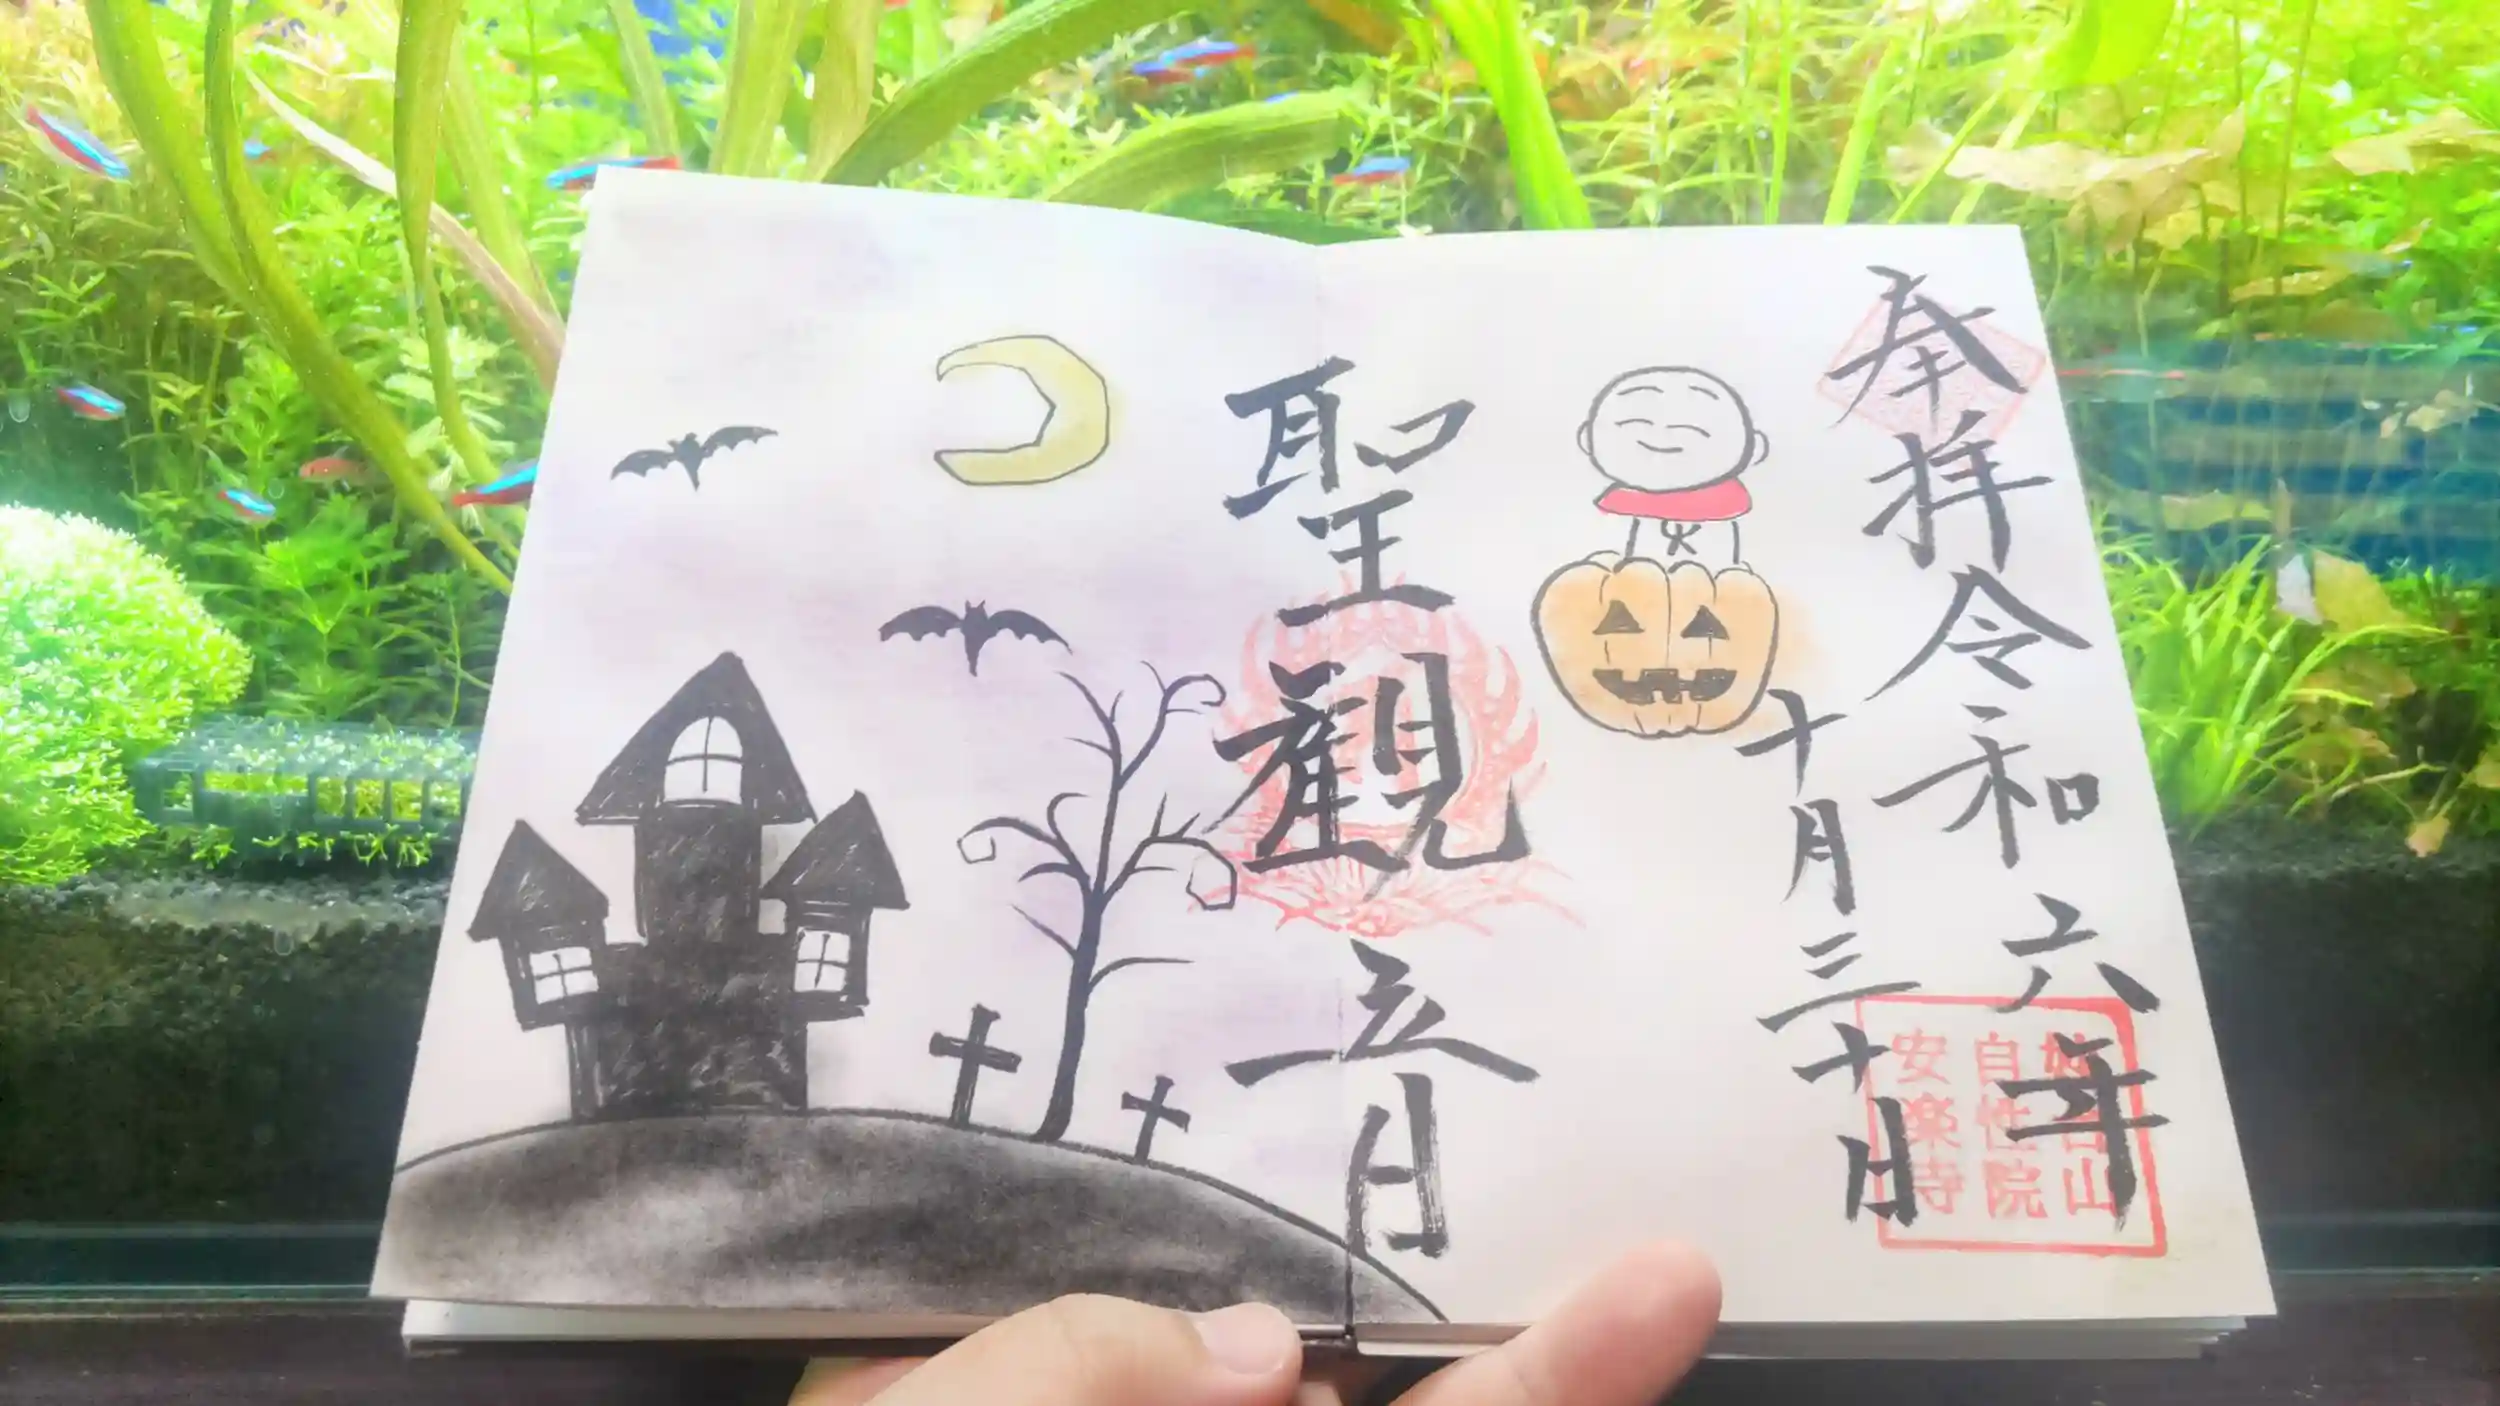 奉拝 令和六年
十月三十日
聖観立日
山
自性院
安楽寺